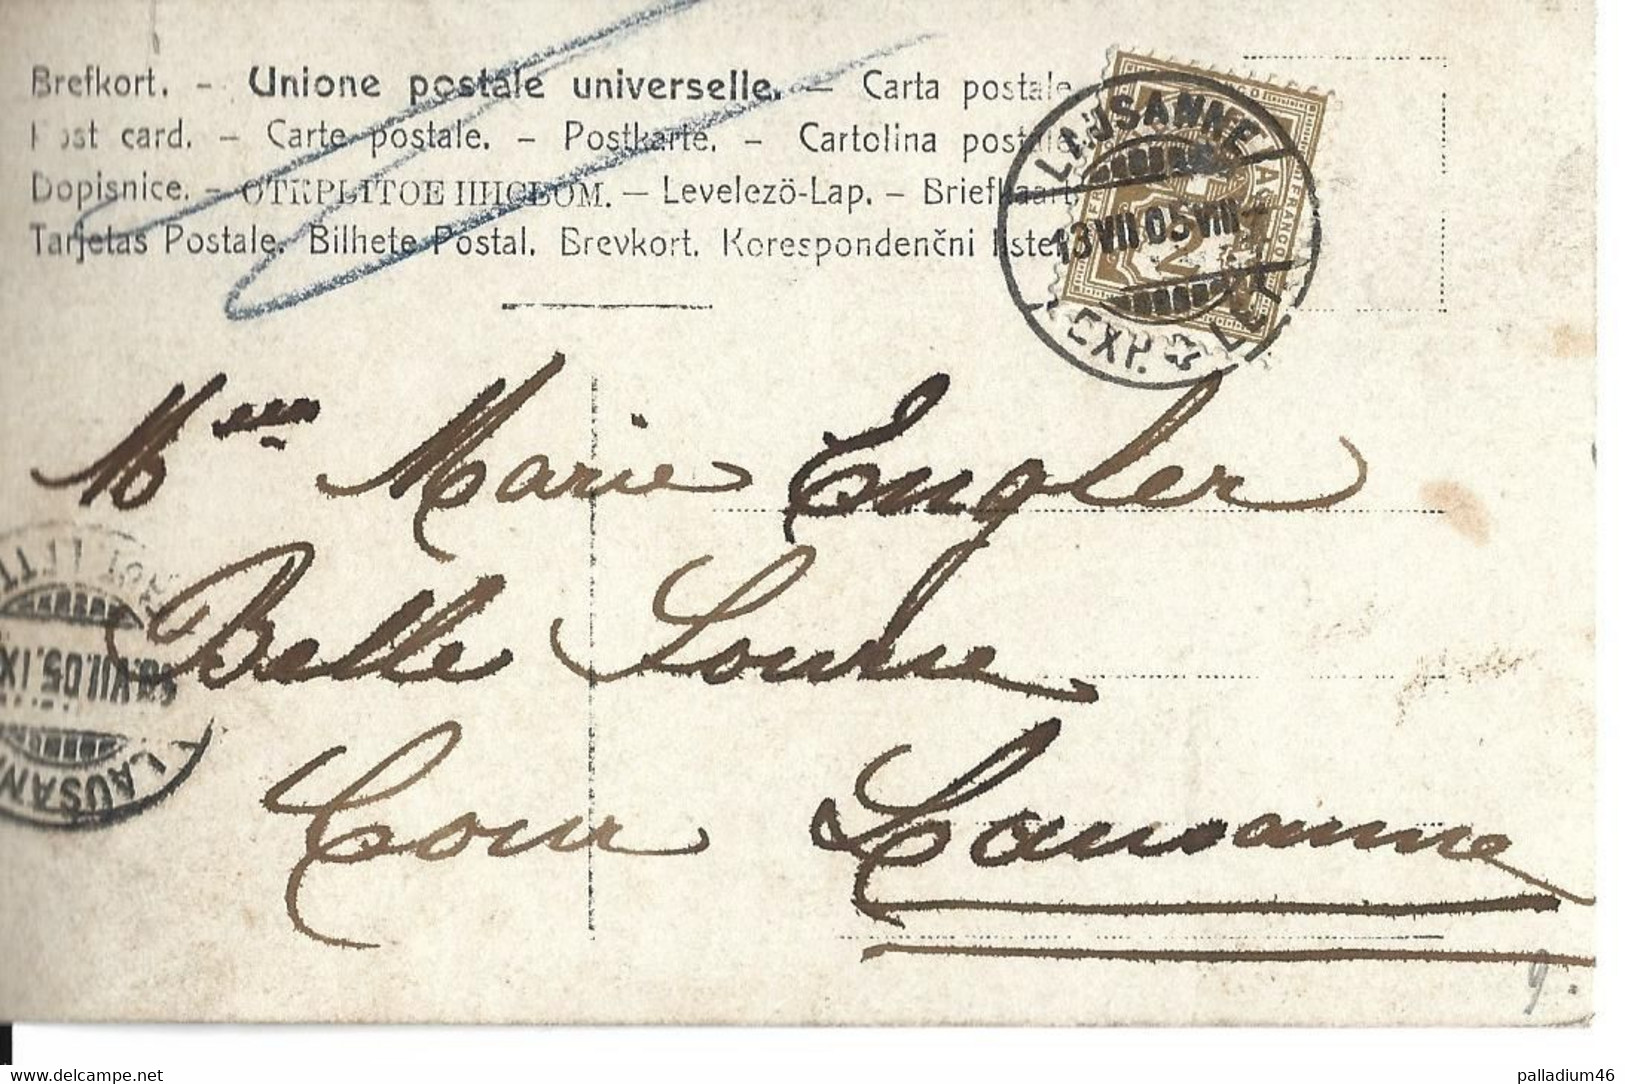 Brefkort. – Unione postale universelle. – Carta postale
Post card. – Carte postale. – Postkarte. – Cartolina postale
Dopisnice. – ОТКРЫТОЕ ПИСЬМО. – Levelezö-Lap. – Briefkaart.
Tarjetas Postale. Bilhete Postal. Brevkort. Korespondenčni listek
LAUSANNE
13 VII 05 VIII
EXP. LET.
FRANCO
2
Melle Marie Engler
Belle Source
Cour Lausanne
VII.05.IX
LAUSAN
9.
delcampe.net
palladium46